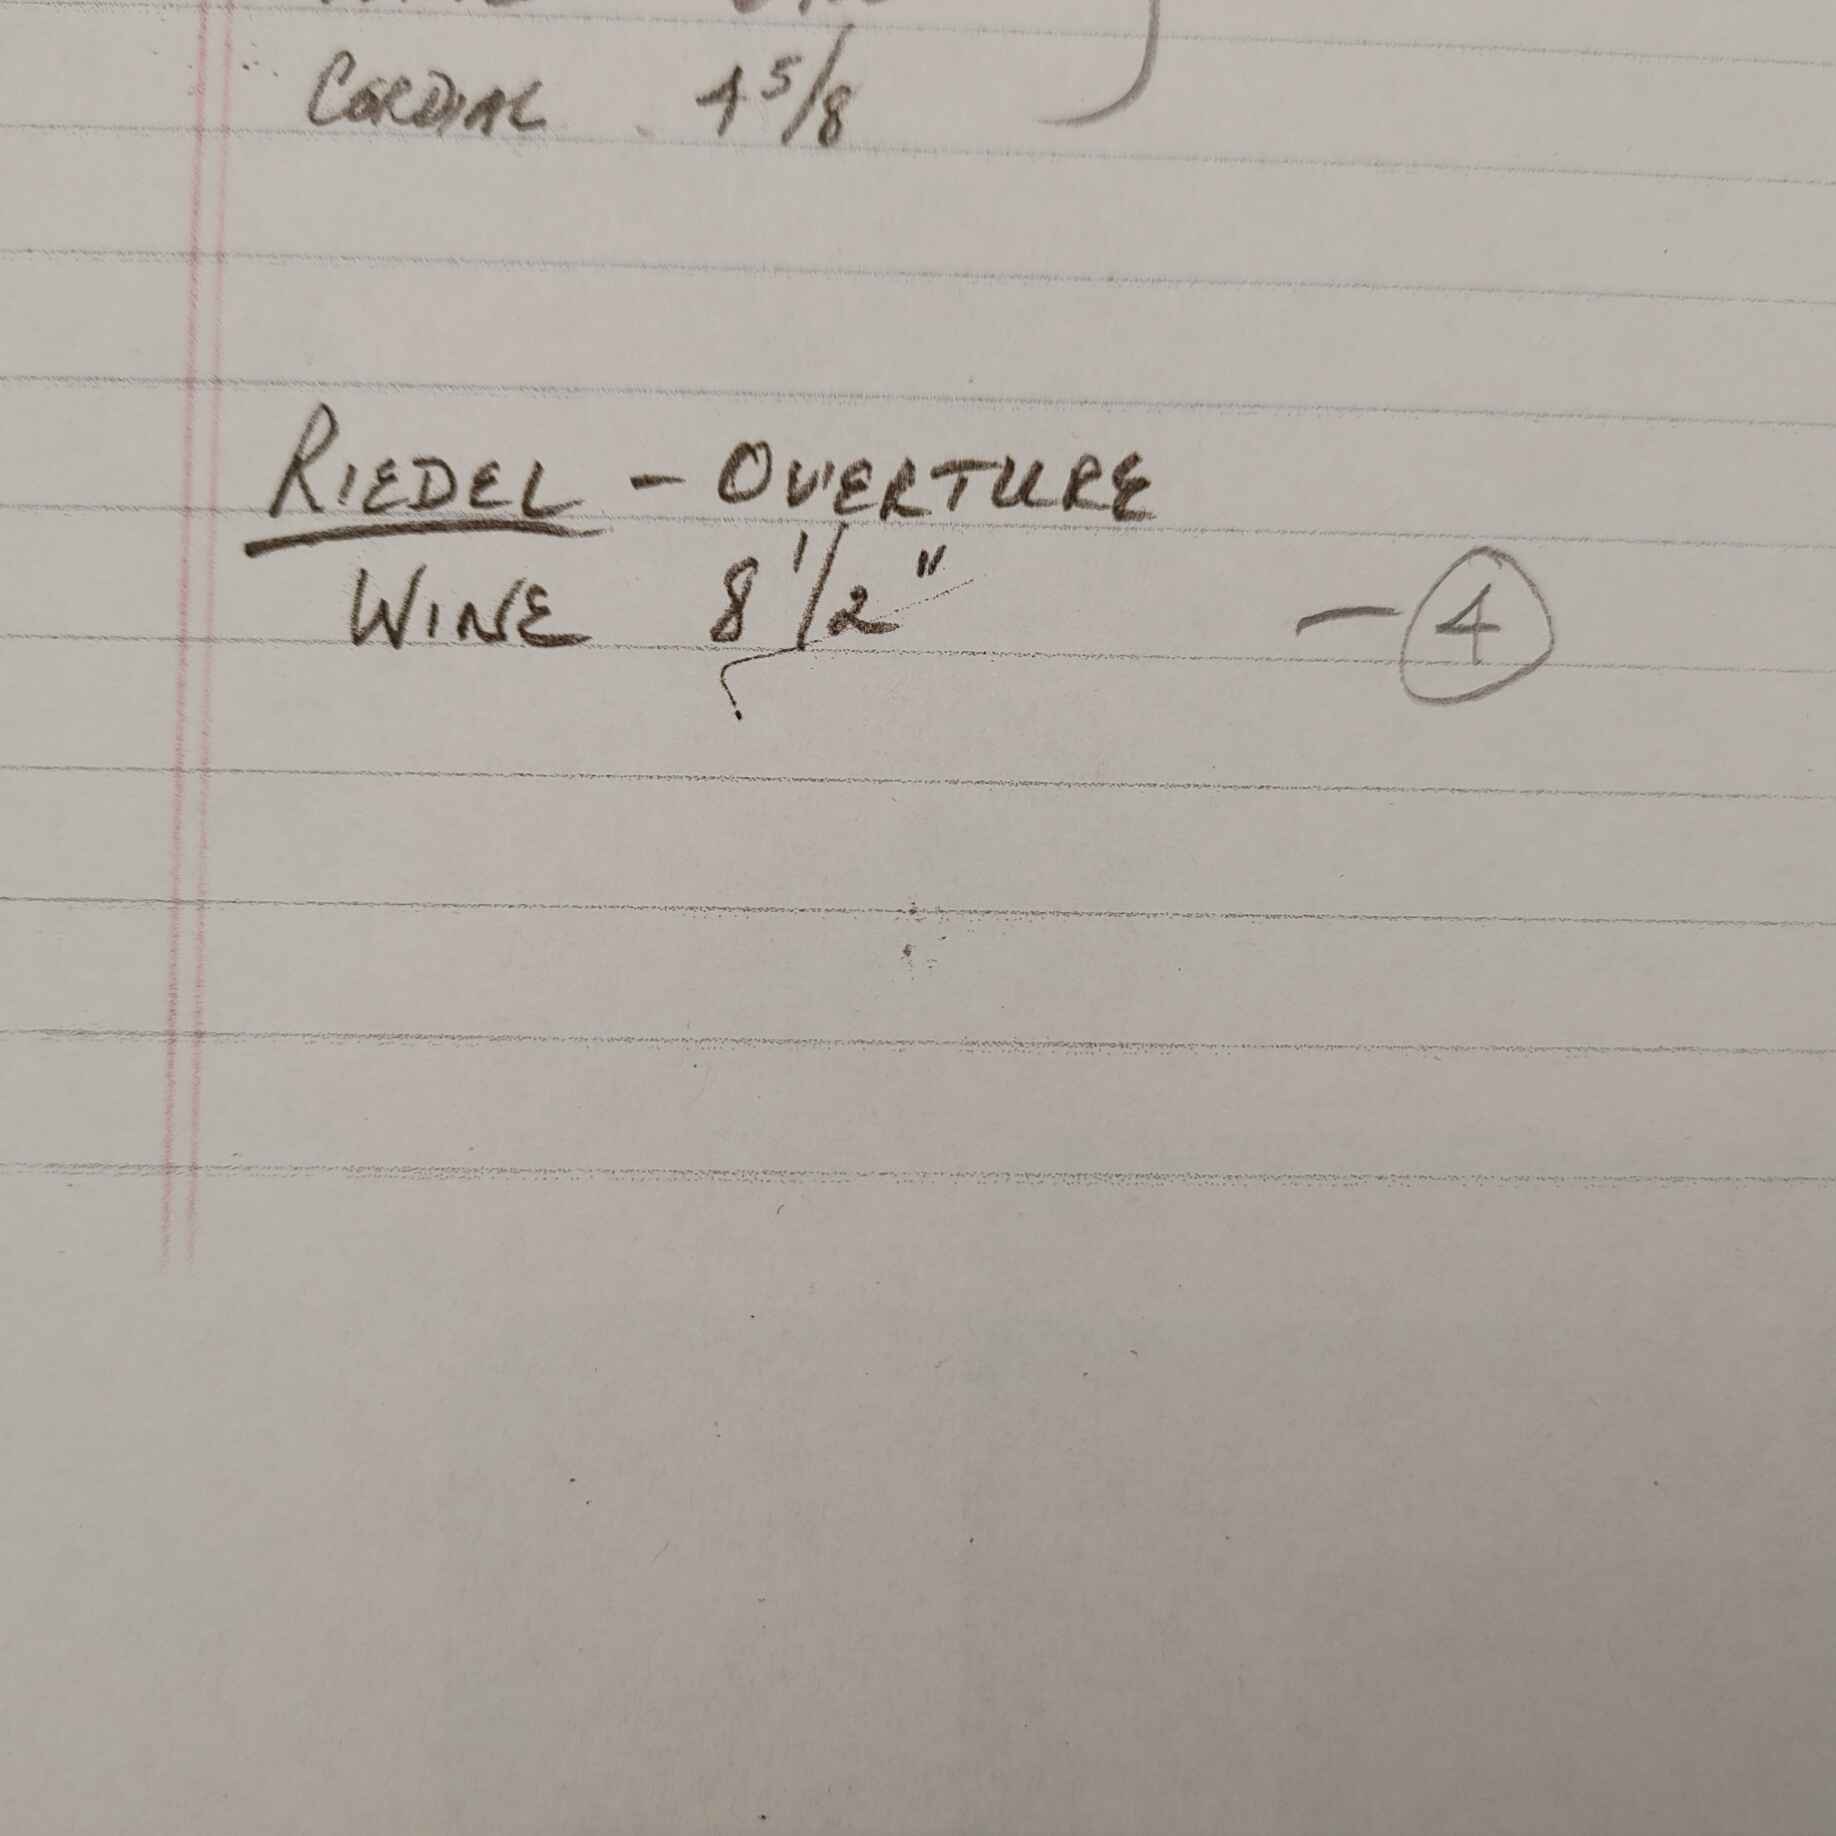 CORDIAL 4 5/8
RIEDEL - OVERTURE
WINE 8 1/2" - 4